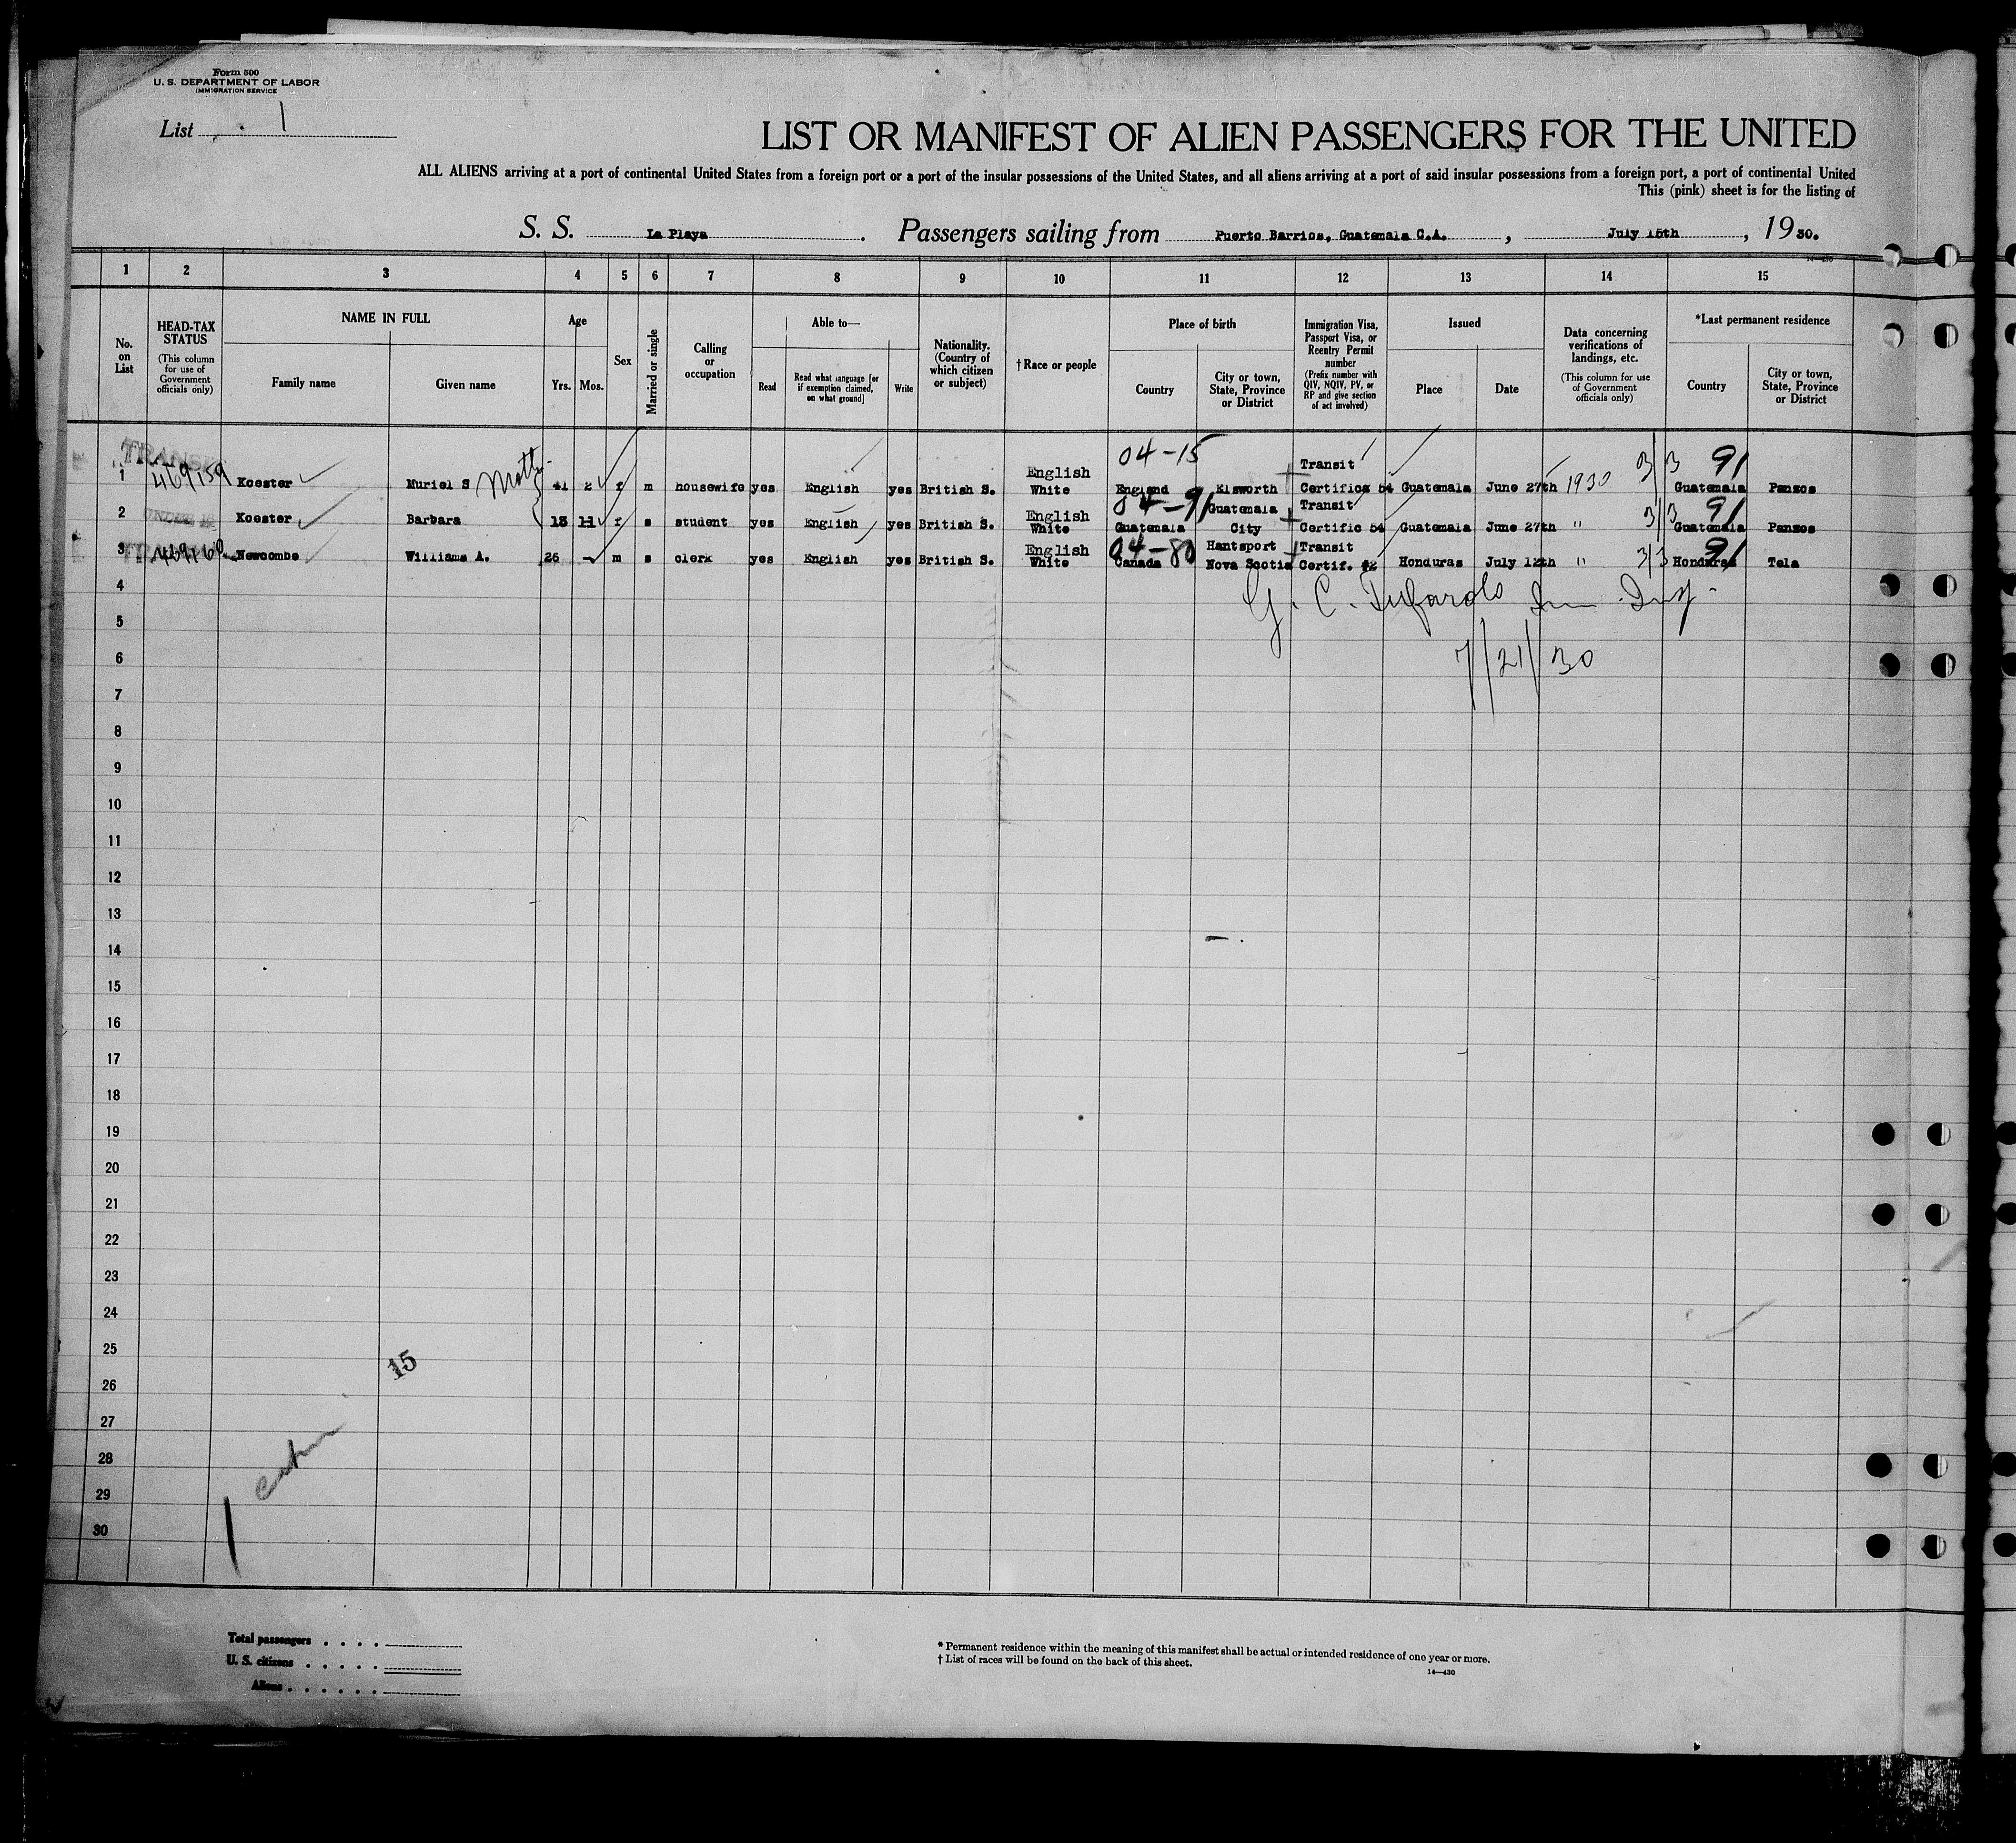 Form 500
U. S. DEPARTMENT OF LABOR
IMMIGRATION SERVICE
List 1
LIST OR MANIFEST OF ALIEN PASSENGERS FOR THE UNITED
ALL ALIENS arriving at a port of continental United States from a foreign port or a port of the insular possessions of the United States, and all aliens arriving at a port of said insular possessions from a foreign port, a port of continental United
This (pink) sheet is for the listing of
S. S. La Playa . Passengers sailing from Puerto Barrios, Guatemala C.A. , July 15th , 19 30.
14—430
1 2 3 4 5 6 7 8 9 10 11 12 13 14 15
No. on List
HEAD-TAX STATUS
(This column for use of Government officials only)
NAME IN FULL
Family name
Given name
Age
Yrs.
Mos.
Sex
Married or single
Calling or occupation
Able to—
Read
Read what language [or if exemption claimed, on what ground]
Write
Nationality. (Country of which citizen or subject)
† Race or people
Place of birth
Country
City or town, State, Province or District
Immigration Visa, Passport Visa, or Reentry Permit number
(Prefix number with QIV, NQIV, PV, or RP and give section of act involved)
Issued
Place
Date
Data concerning verifications of landings, etc.
(This column for use of Government officials only)
*Last permanent residence
Country
City or town, State, Province or District
TRANSIT
04-15
1 469159 Koester Muriel S 41 2 f m housewife yes English yes British S. English White England Elsworth Transit Certific 54 Guatemala June 27th 1930 3/3 91 Guatemala Panzos
2 UNDER 16 Koester Barbara 13 11 f s student yes English yes British S. English White 04-91 Guatemala Guatemala City Transit Certific 54 Guatemala June 27th " 3/3 91 Guatemala Panzos
3 469160 Newcombe Williams A. 26 - m s clerk yes English yes British S. English White 04-80 Canada Hantsport Nova Scotia Transit Certif. #2 Honduras July 12th " 3/3 91 Honduras Tela
4
5
6
7/21/30
7
8
9
10
11
12
13
14
15
16
17
18
19
20
21
22
23
24
25
15
26
27
28
29
30
Total passengers . . . .
U. S. citizens . . . . .
Aliens . . . . . .
* Permanent residence within the meaning of this manifest shall be actual or intended residence of one year or more.
† List of races will be found on the back of this sheet.
14—430